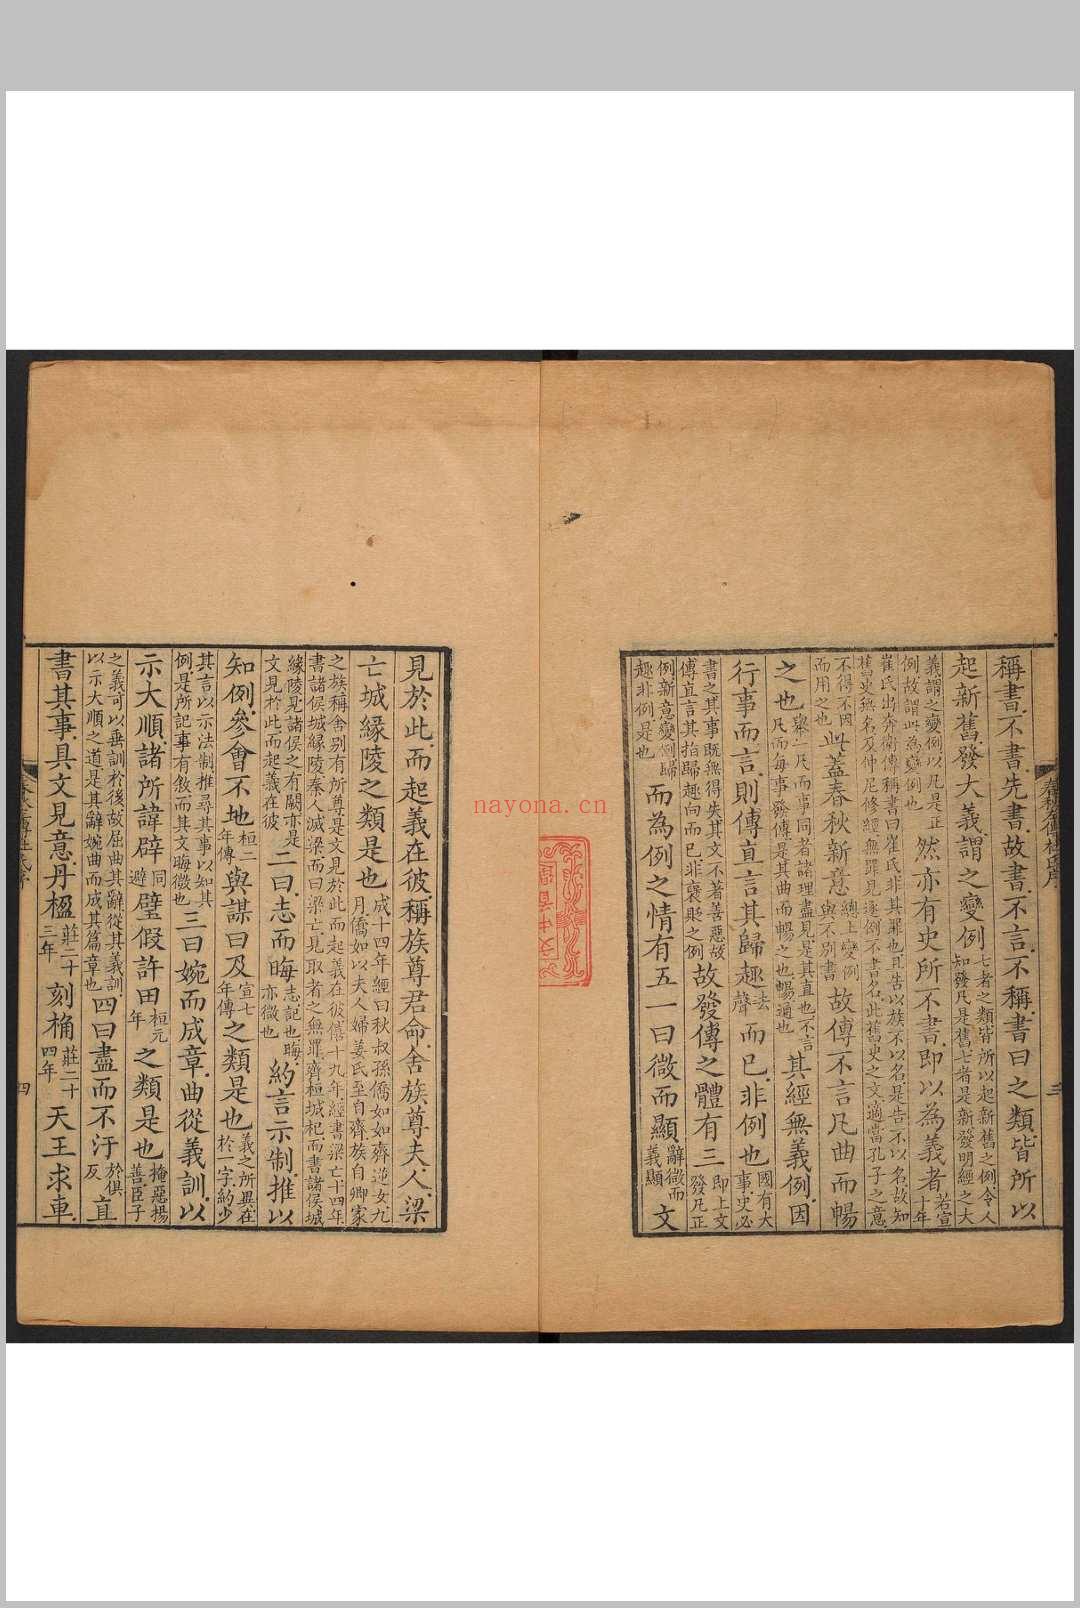 春秋左傳杜氏序
三
稱書不書先書故書不言不稱書曰之類皆所以
起新舊發大義謂之變例七者之類皆所以起新舊之例令人知發凡是舊七者是新發明經之大
義謂之變例以凡是正例故謂此為變例也然亦有史所不書即以為義者若宣十年
崔氏出奔衛傳稱書曰崔氏非其罪也且告以族不以名是告不以名故知舊史無名及仲尼修經無罪見逐例不書名此舊史之文適當孔子之意
不得不因而用之也此蓋春秋新意總上變例與不別書故傳不言凡曲而暢
之也舉一凡而事同者諸理盡見是其直也不言凡而每事發傳是其曲而暢之也暢通也其經無義例因
行事而言則傳直言其歸趣去聲而已非例也國有大事史必
書之其事既無得失其文不著善惡故傳直言其指歸趣向而已非褒貶之例故發傳之體有三即上文發凡正
例新意變例歸趣非例是也而為例之情有五一曰微而顯辭微而義顯文
見於此而起義在彼稱族尊君命舍族尊夫人梁
亡城緣陵之類是也成十四年經曰秋叔孫僑如如齊逆女九月僑如以夫人婦姜氏至自齊族自卿家
之族稱舍別有所尊是文見於此而起義在彼僖十九年經書梁亡十四年書諸侯城緣陵秦人滅梁而曰梁亡見取者之無罪齊桓城杞而書諸侯城
緣陵見諸侯之有闕亦是文見於此而起義在彼二曰志而晦志記也晦亦微也約言示制推以
知例參會不地桓二年傳與謀曰及宣七年傳之類是也義之所異在於一字約少
其言以示法制推尋其事以知其例是所記事有敘而其文晦微也三曰婉而成章曲從義訓以
示大順諸所諱辟同避璧假許田桓元年之類是也掩惡揚善臣子
之義可以垂訓於後故屈曲其辭從其義訓以示大順之道是其辭婉曲而成其篇章也四曰盡而不汙於俱反直
書其事具文見意丹楹莊二十三年刻桷莊二十四年天王求車
四
nayona.cn